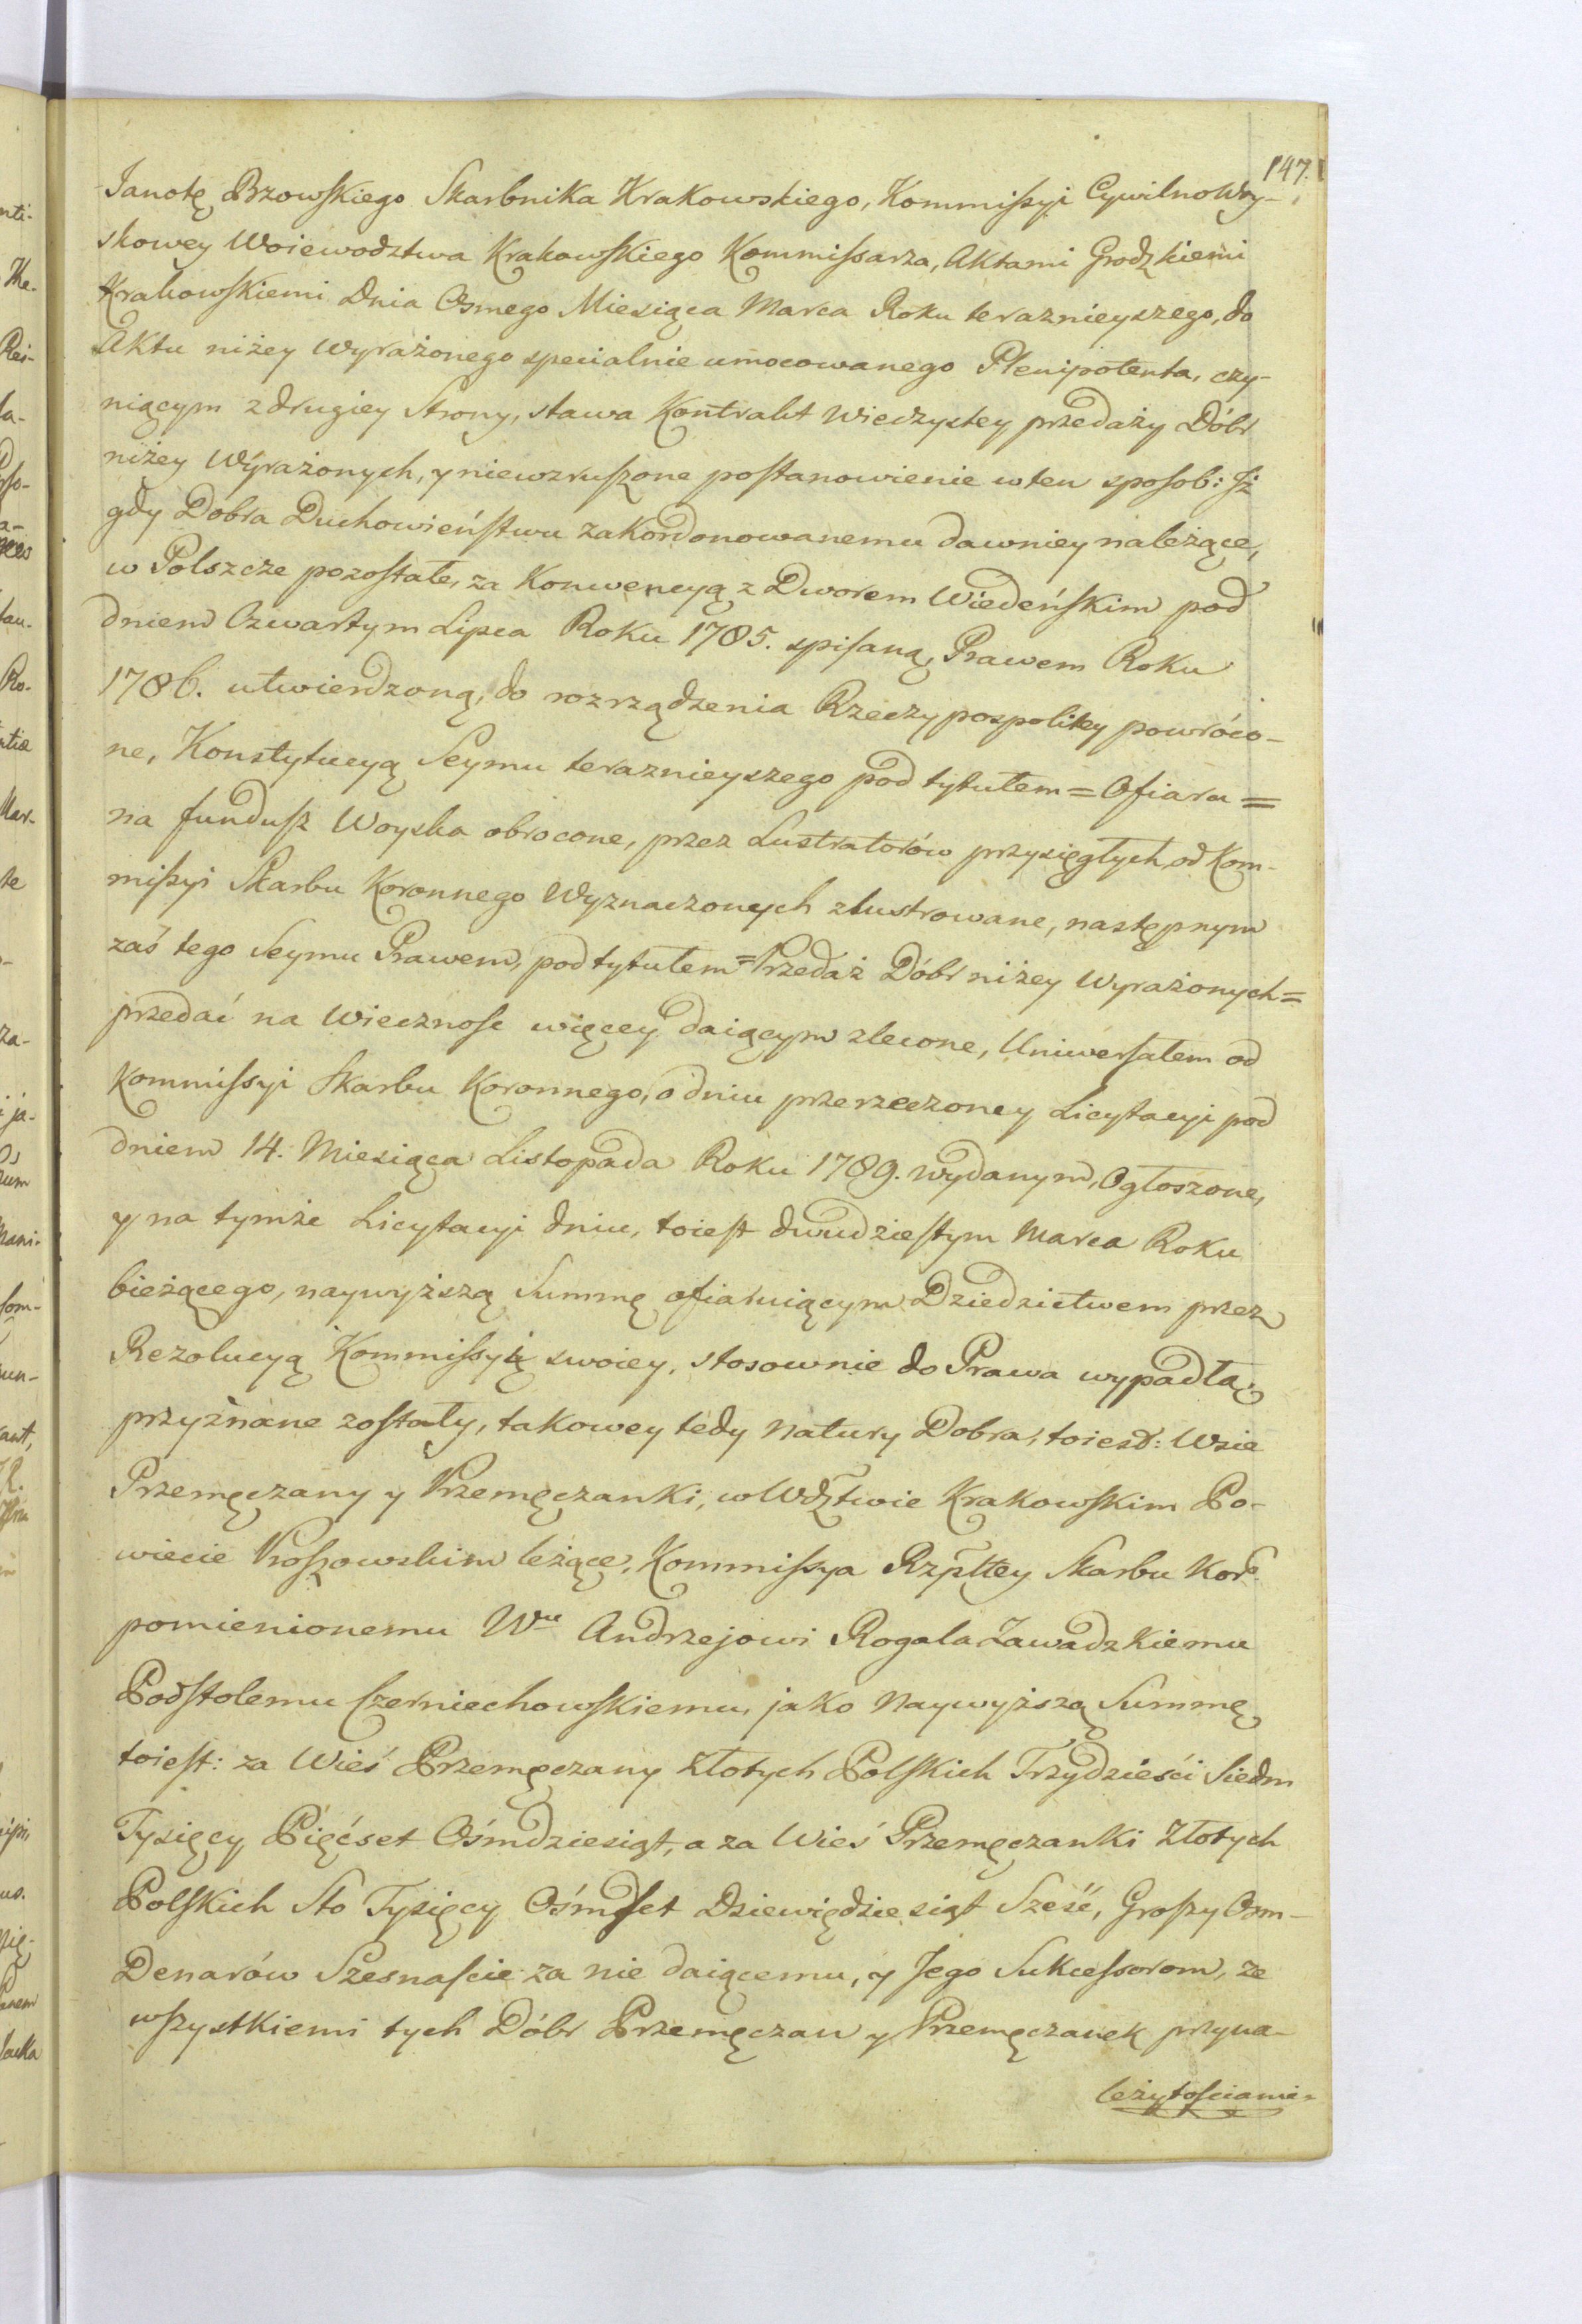 147.
Janotę Brzowskiego Skarbnika Krakowskiego, Kommissyi Cywilno Woy-
skowey Woiewodztwa Krakowskiego Kommissarza, Aktami Grodzkiemi
Krakowskiemi Dnia Osmego Miesiąca Marca Roku teraznieyszego, do
Aktu niżey wyrażonego specialnie umocowanego Plenipotenta, czy-
niącym z drugiey Strony, stawa Kontrakt Wieczystey przedaży Dóbr
niżey Wyrażonych, y niewzruszone postanowienie w ten sposob: Jż
gdy Dobra Duchowieństwu zakordonowanemu dawniey należące,
w Polszcze pozostałe, za Konwencyą z Dworem Wiedeńskim pod
dniem Czwartym Lipca Roku 1785. spisaną, Prawem Roku
1786. utwierdzoną, do rozrządzenia Rzeczypospolitey powróco-
ne, Konstytucyą Seymu teraznieyszego pod tytułem = Ofiara =
na fundusz Woyska obrocone, przez Lustratorów przysięgłych, od Kom-
missyi Skarbu Koronnego Wyznaczonych zlustrowane, następnym
zaś tego Seymu Prawem, pod tytułem = Przedaż Dóbr niżey Wyrażonych =
przedać na Wiecznosc więcey daiącym zlecone, Uniwersałem od
Kommissyi Skarbu Koronnego, o dniu przerzeczoney Licytacyi pod
dniem 14. Miesiąca Listopada Roku 1789. wydanym, Ogłoszone,
y na tymże Licytacyi dniu, toiest dwudziestym Marca Roku
bieżącego, naywyższą Summę ofiaruiącym Dziedzictwem przez
Rezolucyą Kommissyi swoiey, stosownie do Prawa wypadłą,
przyznane zostały, takowey tedy natury Dobra, toiest: Wsie
Przemęczany y Przemęczanki, w Wdztwie Krakowskim Po-
wiecie Proszowskim leżące, Kommissya Rzpltey Skarbu Kor:
pomienionemu Wu Andrzejowi Rogala Zawadzkiemu
Podstolemu Czerniechowskiemu, jako Naywyższą Summę,
toiest: za Wieś Przemęczany Złotych Polskich Trzydzieści Siedm
Tysięcy Pięćset Ośmdziesiąt, a za Wieś Przemęczanki Złotych
Polskich Sto Tysięcy Ośmset Dziewiędziesiąt Sześć, Groszy Osm-
Denarów Szesnaście za nie daiącemu, y Jego Sukcessorom, ze
wszystkiemi tych Dóbr Przemęczan y Przemęczanek przyna-
leżytościami-